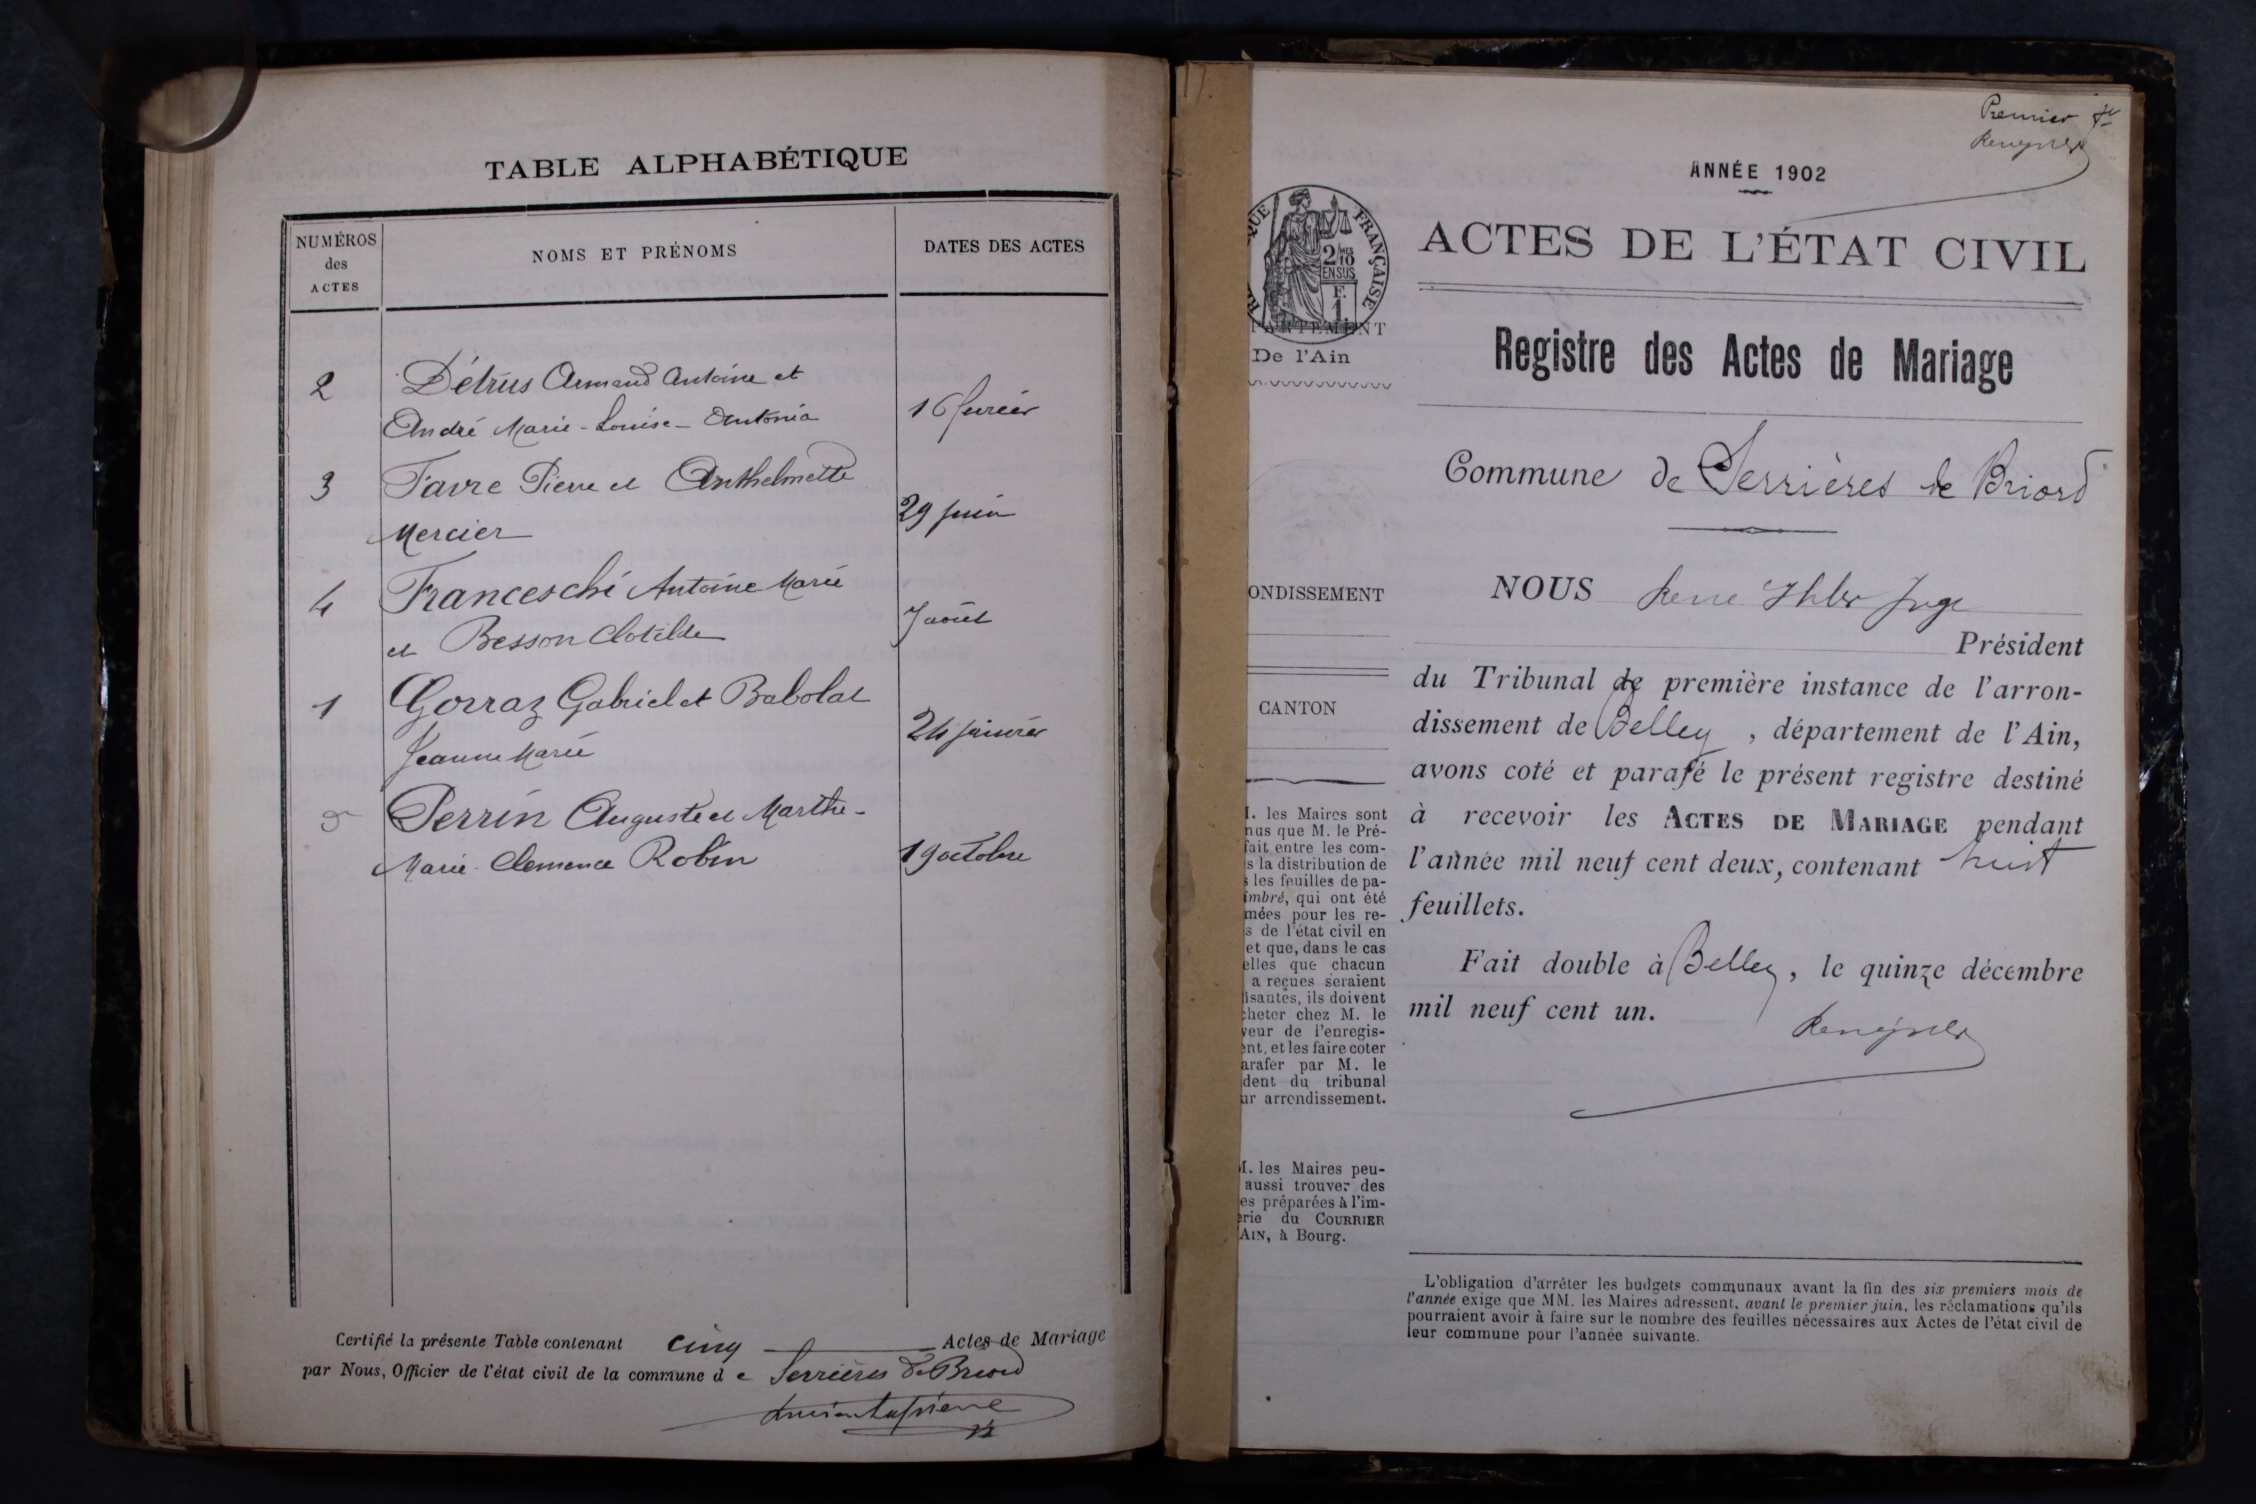 TABLE ALPHABÉTIQUE
NUMÉROS
des
ACTES
NOMS ET PRÉNOMS
DATES DES ACTES
2 Détrus Armand Antoine et
André Marie-Louise-Antonia 16 février
3 Favre Pierre et Anthelmette
Mercier 29 juin
4 Franceschi Antoine Marie
et Besson Clotilde 7 août
1 Gorraz Gabriel et Babolat
Jeanne Marie 24 janvier
5 Perrin Auguste et Marthe-
Marie-Clemence Robin 19 octobre
Certifié la présente Table contenant cinq Actes de Mariage
par Nous, Officier de l'état civil de la commune de Serrières de Briord
Premier
ANNÉE 1902
ACTES DE L'ÉTAT CIVIL
QUE FRANÇAISE
2/10
EN SUS
F.
1
PARTEMENT
De l'Ain
Registre des Actes de Mariage
Commune de Serrières de Briord
ONDISSEMENT
CANTON
NOUS René Juge
Président
du Tribunal de première instance de l'arron-
dissement de Belley, département de l'Ain,
avons coté et parafé le présent registre destiné
à recevoir les ACTES DE MARIAGE pendant
l'année mil neuf cent deux, contenant huit
feuillets.
Fait double à Belley, le quinze décembre
mil neuf cent un.
M. les Maires sont
nus que M. le Pré-
fait entre les com-
s la distribution de
s les feuilles de pa-
imbré, qui ont été
mées pour les re-
s de l'état civil en
et que, dans le cas
elles que chacun
a reçues seraient
isantes, ils doivent
cheter chez M. le
veur de l'enregis-
ent, et les faire coter
arafer par M. le
dent du tribunal
ur arrondissement.
M. les Maires peu-
aussi trouver des
es préparées à l'im-
erie du COURRIER
AIN, à Bourg.
L'obligation d'arrêter les budgets communaux avant la fin des six premiers mois de
l'année exige que MM. les Maires adressent, avant le premier juin, les réclamations qu'ils
pourraient avoir à faire sur le nombre des feuilles nécessaires aux Actes de l'état civil de
leur commune pour l'année suivante.